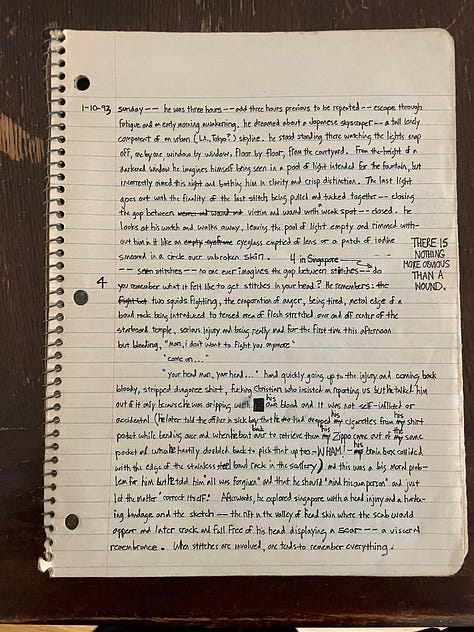 1-10-93 sunday -- he was three hours -- add three hours previous to be repeated -- escape through
fatigue and an early morning awakening. he dreamed about a Japanese skyscraper -- a tall lonely
component of an urban (L.A., Tokyo?) skyline. he stood standing there watching the lights snap
off, one by one, window by window. floor by floor, from the courtyard. From the height of a
darkened window he imagines himself being seen in a pool of light intended for the fountain, but
incorrectly aimed this night and bathing him in clarity and crisp distinction. The last light
goes out with the finality of the last stitch being pulled and tucked together -- closing
the gap between victim and wound with weak spot -- closed. he
looks at his watch and walks away, leaving the pool of light empty and rimmed with-
out him in it like an eyeglass emptied of lens or a patch of iodine
smeared in a circle over unbroken skin. 4 in Singapore
THERE IS
NOTHING
MORE OBVIOUS
THAN A
WOUND.
-- stitches -- no one ever imagines the gap between stitches -- do
4 you remember what it felt like to get stitches in your head? He remembers: the
two squids fighting, the evaporation of anger, being tired, metal edge of a
bowl rack being introduced to tensed area of flesh stretched over and off center of the
starboard temple, serious injury and being really mad for the first time this afternoon
but bleeding, "man, i don't want to fight you anymore"
"come on..."
"your head man, your head..." hand quickly going up to the injury and coming back
bloody, stripped dungaree shirt, fucking Christian who insisted on reporting us but he talked him
out of it only because he was dripping with his own blood and it was not self-inflicted or
accidental (he later told the officer in sick bay that he had dropped his cigarettes from his shirt
pocket while bending over and when he bent over to retrieve them his Zippo came out of the same
pocket and when he hastily doubled back to pick that up too -- WHAM! -- his brain box collided
with the edge of the stainless steel bowl rack in the scullery) and this was a big moral prob-
lem for him but he told him all was forgiven" and that he should "mind his own person" and just
let the matter "correct itself." Afterwards, he explored singapore with a head injury and a harden-
ing bandage and the sketch -- the rift in the valley of head skin where the scab would
appear and later crack and fall free of his head displaying a scar -- a visceral
remembrance. When stitches are involved, one tends to remember everything.